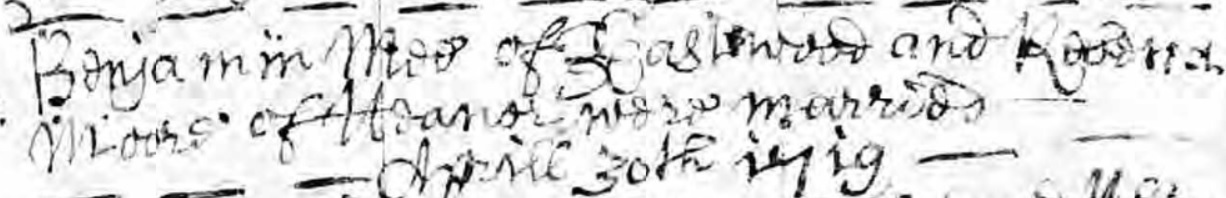 Benjamin Mee of Eastwood and
Moore of Heanor were married
Aprill 30th 1719